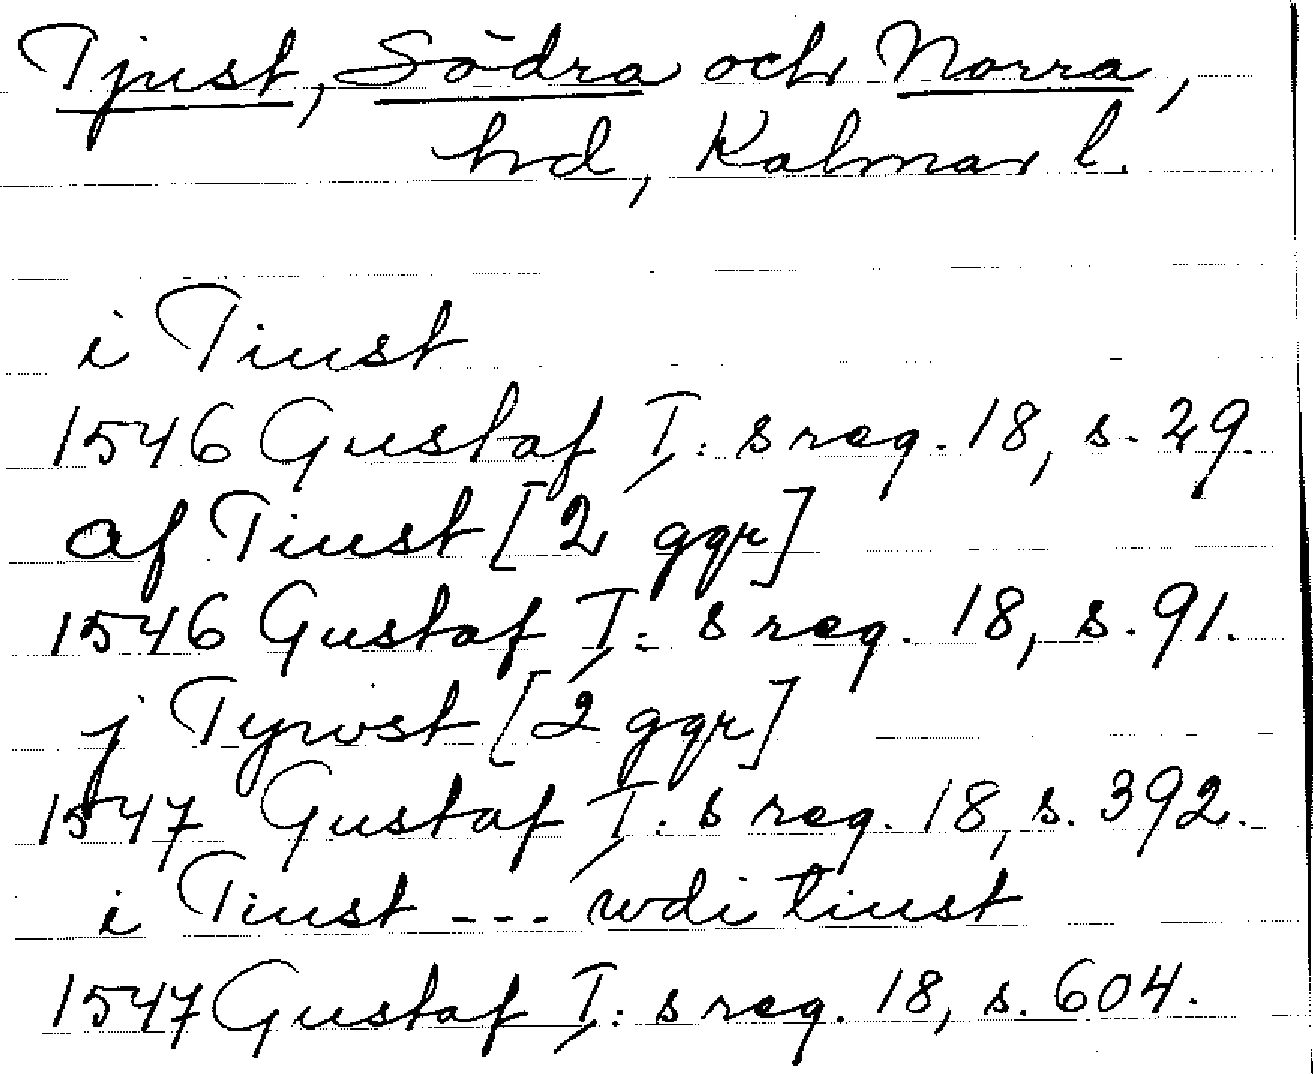 Tjust, Södra och Norra,
hd, Kalmar l.
i Tiust
1546 Gustaf I:s reg. 18, s. 29.
af Tiust [2 ggr]
1546 Gustaf I:s reg. 18, s. 91.
j Tywst [2 ggr]
1547 Gustaf I:s reg. 18, s. 392.
i Tiust --- wdi tiust
1547 Gustaf I:s reg. 18, s. 604.